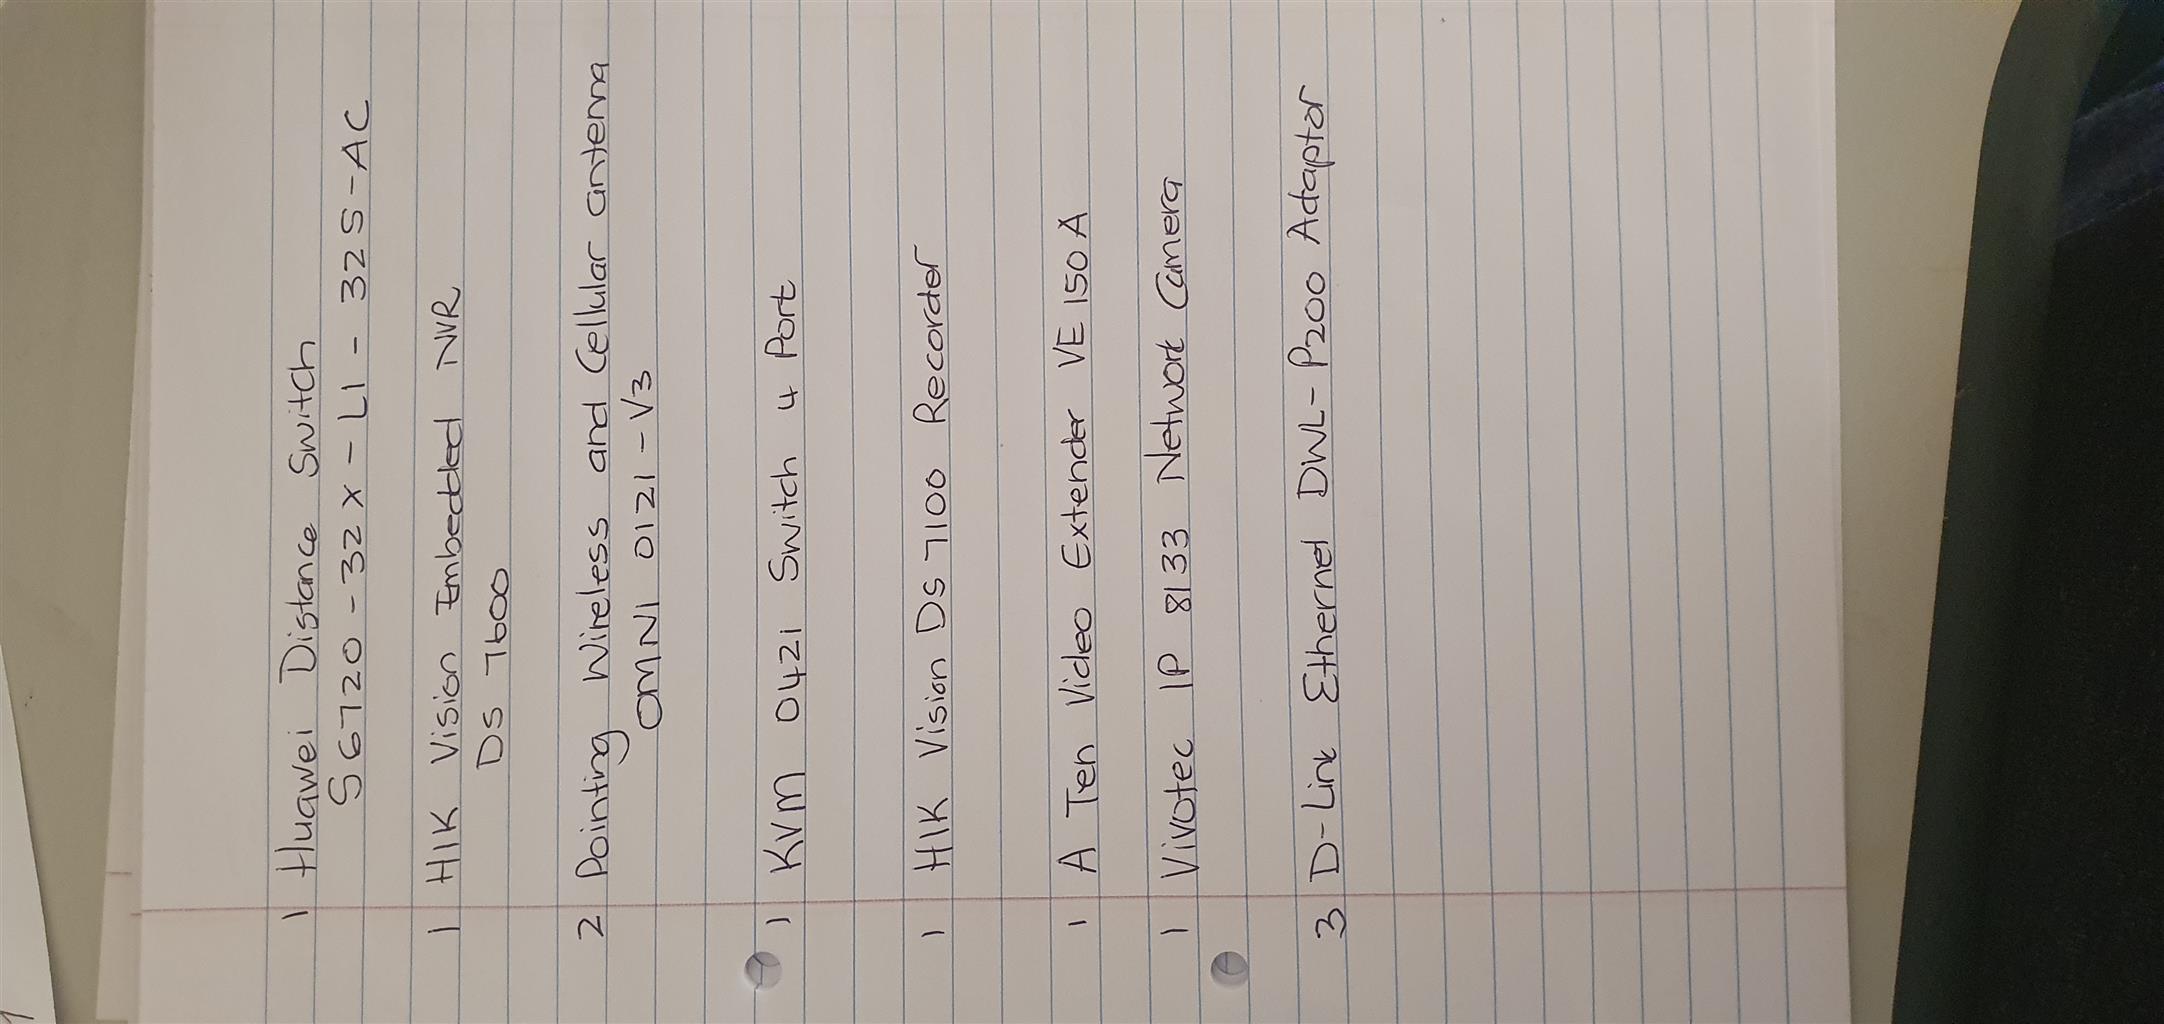 1 Huawei Distance Switch
S6720-32X-L1-32S-AC
1 HIK Vision Imbedded NVR
DS 7600
2 Pointing Wireless and Cellular antenna
OMNI 0121-V3
1 KVM 0421 Switch 4 Port
1 HIK Vision Ds 7100 Recorder
1 A Ten Video Extender VE 150A
1 Vivotec IP 8133 Network Camera
3 D-Link Ethernet DWL-P200 Adaptor